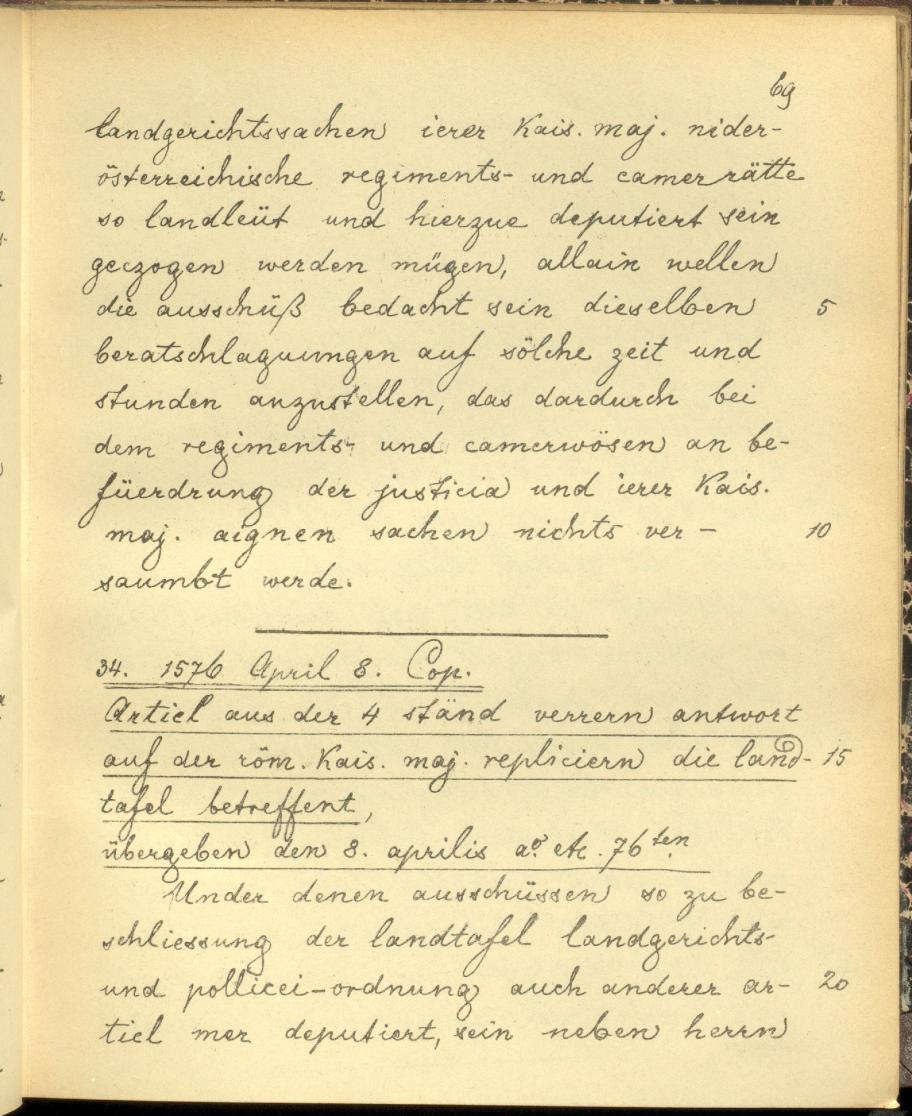 69
landgerichtssachen ierer kais. maj. nider-
österreichische regiments- und camerrätte
so landleüt und hierzue deputiert sein
geczogen werden mügen, allain wellen
die ausschüß bedacht sein dieselben 5
beratschlaguungen auf sölche zeit und
stunden anzustellen, das dardurch bei
dem regiments- und camerwösen an be-
füerdrung der justicia und ierer kais.
maj. aignen sachen nichts ver- 10
saumbt werde.
34. 1576 April 8. Cop.
Articl aus der 4 ständ verrern antwort
auf der röm. kais. maj. repliciern die land- 15
tafel betreffent,
übergeben den 8. aprilis aº. etc. 76ten.
Under denen ausschüssen so zu be-
schliessung der landtafel landgerichts-
und pollicei-ordnung auch anderer ar- 20
ticl mer deputiert, sein neben herrn